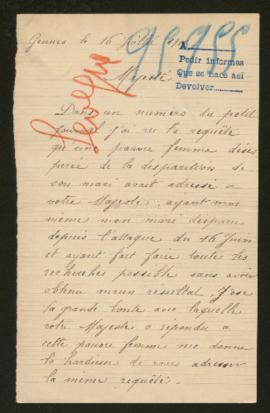 Gennes le 16 Juillet
95955
A
Pedir informes
Que se hace así
Devolver
Majesté
Dans un numéro du petit
journal j'ai vu la requête
qu'une pauvre femme déses
pérée de la disparition de
son mari avait adressée a
votre Majesté, ayant moi
même mon mari disparu
depuis l'attaque du 16 Juin
et ayant fait faire toutes les
recherches possible sans avoir
obtenu aucun resultat. J'ose
la grande bonté avec laquelle
votre Majesté a répondu a
cette pauvre femme me donne
la hardiesse de vous adresser
la même requête.